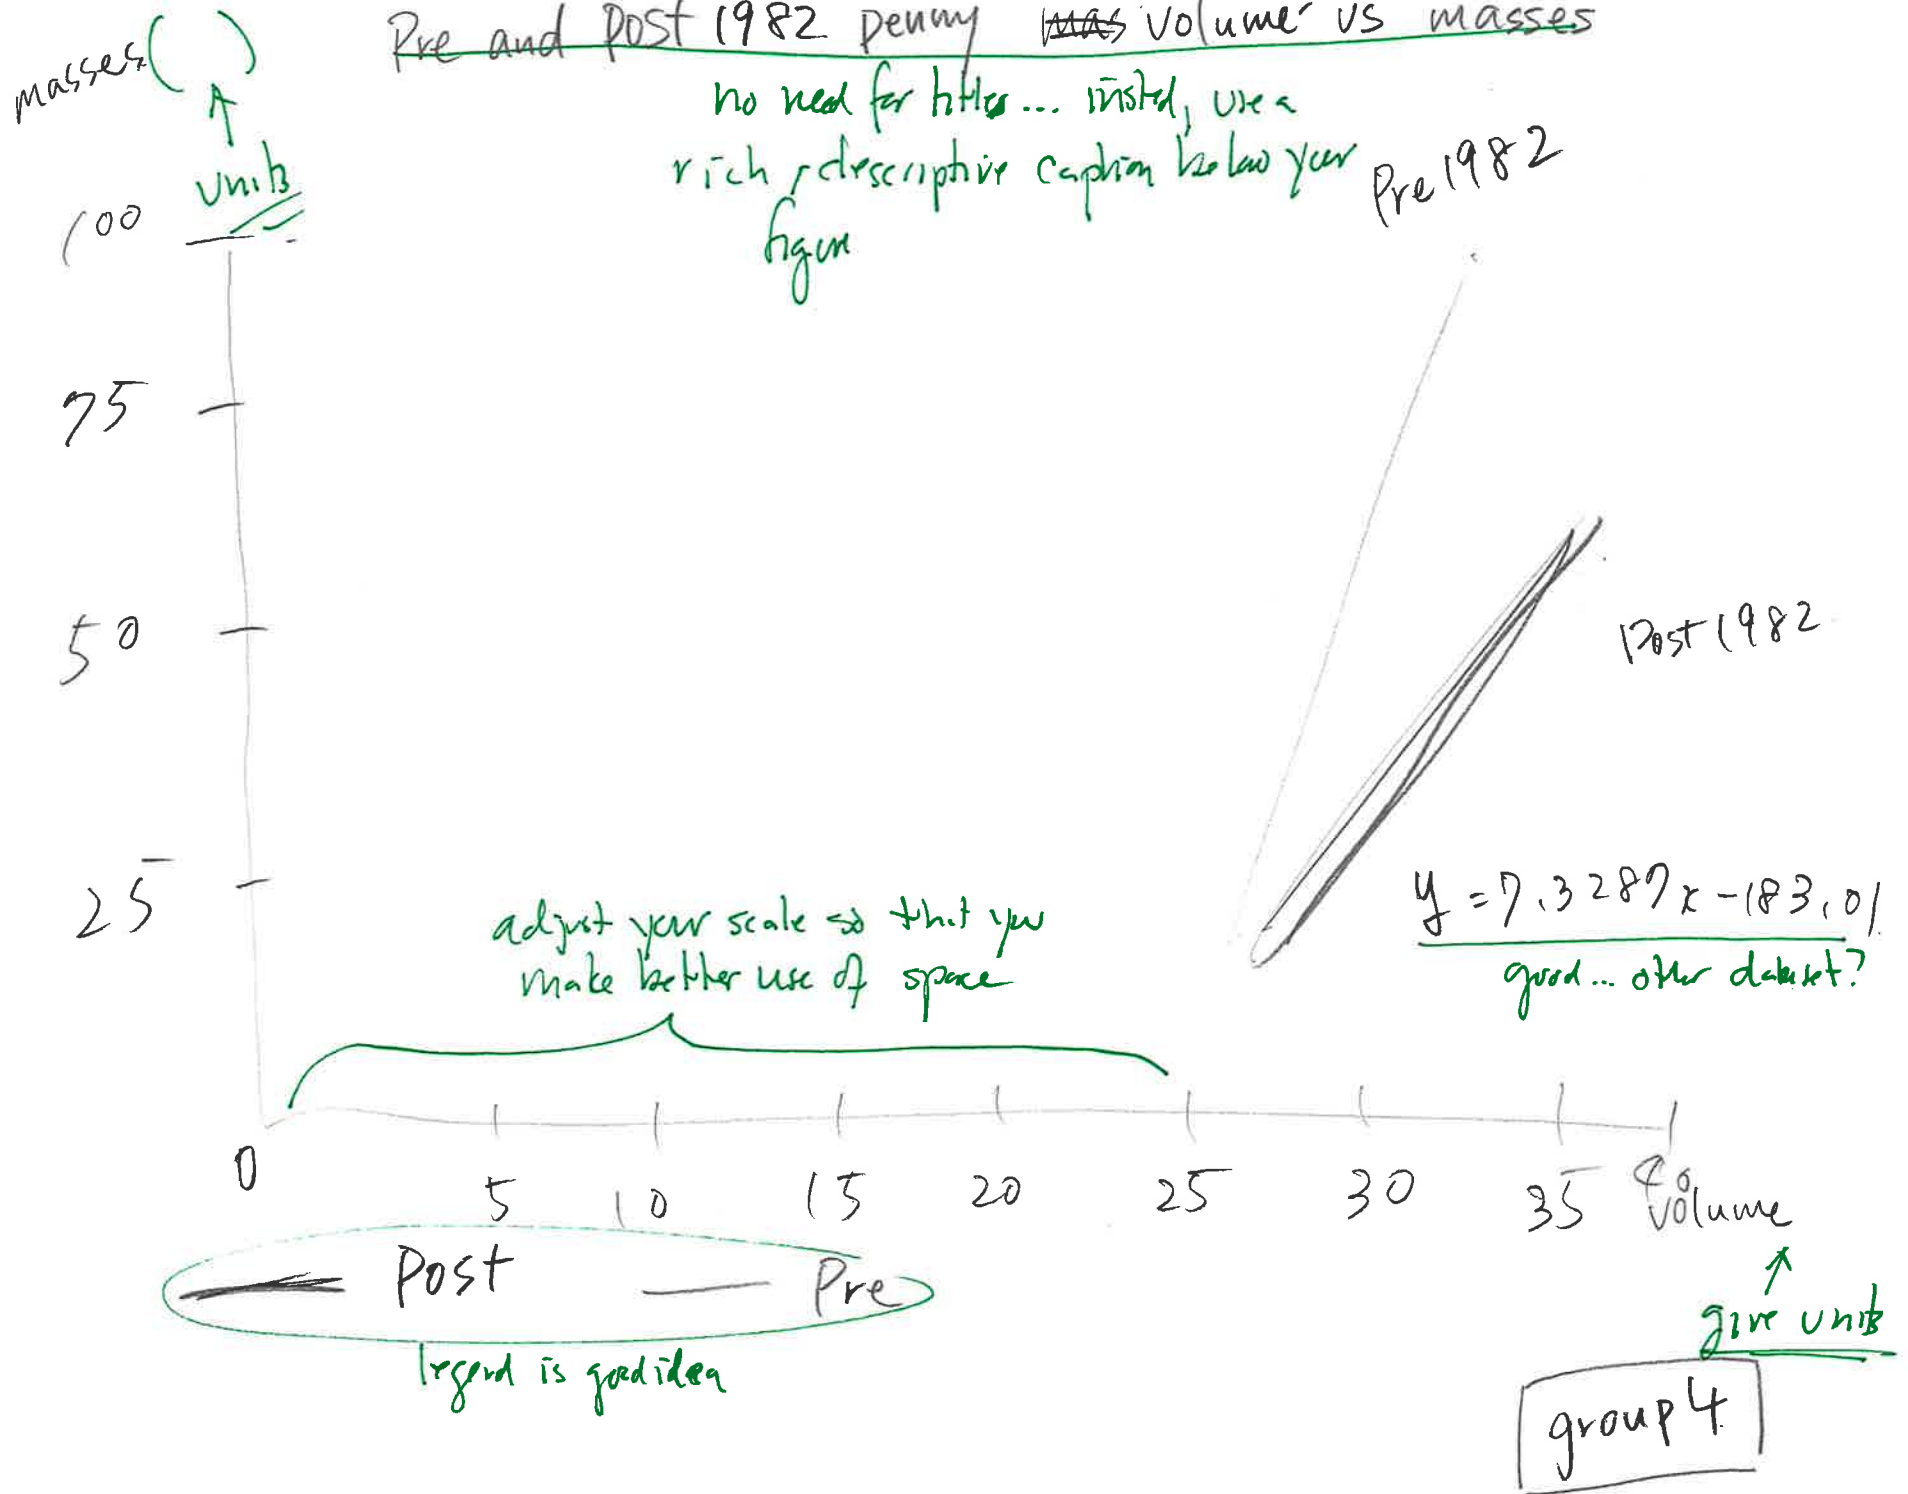 Pre and Post 1982 penny mas volume vs masses
masses( )
units
no need for titles... insted, use a
rich, descriptive caption below your
figure
Pre 1982
100
75
50
25
Post 1982
y = 7.3287x - 183.01
good... other dataset?
adjust your scale so that you
make better use of space
0 5 10 15 20 25 30 35 40
volume
give units
Post Pre
legend is good idea
group 4